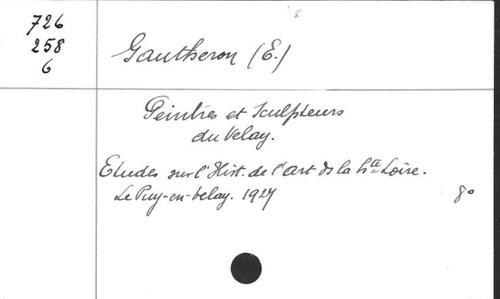 726
258
6
Gautheron (E.)
Peintres et Sculpteurs
du Velay.
Etudes sur l'Hist. de l'art ds la Hte-Loire.
Le Puy-en-Velay. 1927 8°